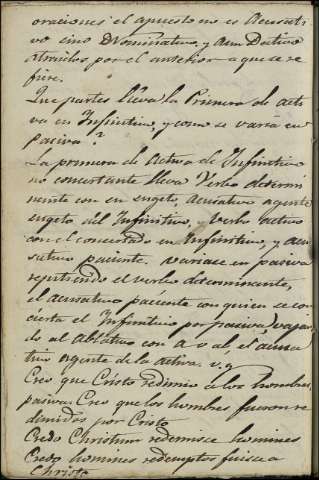 oraciones el apuesto no es Acusati
vo sino Nominativo, y aun Dativo
atraidos por el anterior a que se re
fiere.
Que partes lleva la Primera de acti
va en Infinitivo, y como se varia en
Pasiva?
La primera de Activa de Infinitivo
no concertante lleva Verbo determi
nante con su sugeto, Acusativo agente
sugeto del Infinitivo, y Verbo activo
con el concertado en Infinitivo, y Acu
sativo paciente. Variase en pasiva
repitiendo el verbo determinante,
el acusativo paciente con quien se con
cierta el Infinitivo por pasiva, y bajan
do al ablativo con a o ab, el acusa
tivo agente de la activa. v. g.
Creo que Cristo redimio a los hombres,
pasiva Creo que los hombres fueron re
dimidos por Cristo
Credo Christum redemisse homines
Credo homines redemptos fuisse a
Christo